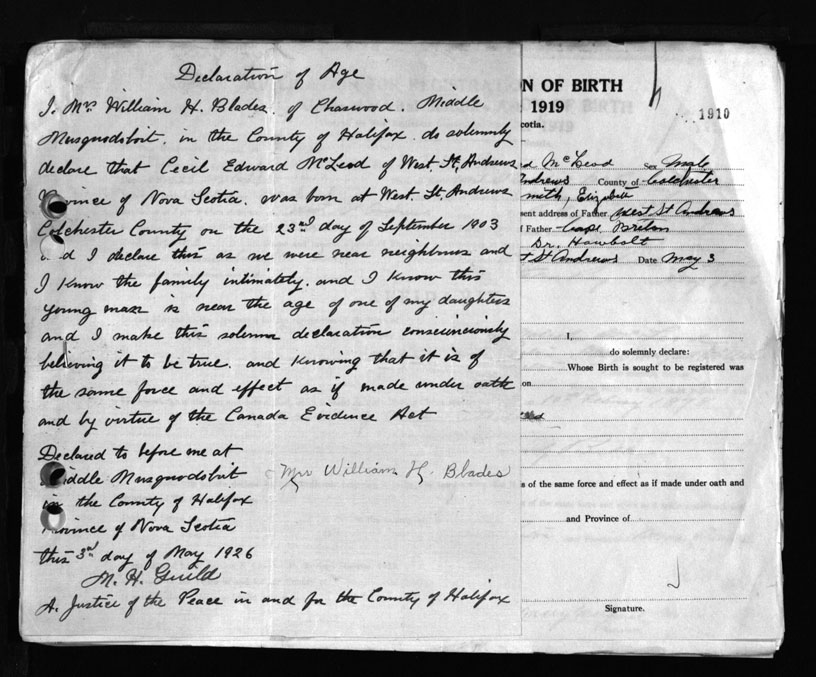 Declaration of Age
I. Mrs William H. Blades. of Chaswood. Middle
Musquodoboit. in the County of Halifax. do solemnly
declare that Cecil Edward McLeod of West. St. Andrews
Province of Nova Scotia. was born at West. St. Andrews
Colchester County on the 23rd day of September 1903
and I declare this as we were near neighbours and
I know the family intimately. and I know this
young man is near the age of one of my daughters
and I make this solemn declaration consciencously
believing it to be true. and knowing that it is of
the same force and effect as if made under oath
and by virtue of the Canada Evidence Act
Declared to before me at
Middle Musquodoboit
in the County of Halifax
Province of Nova Scotia
this 3rd day of May 1926
M. H. Guild
A. Justice of the Peace in and for the County of Halifax
Mrs William H. Blades
N OF BIRTH
1919
cotia.
1910
d McLeod Sex Male
Andrews County of Colchester
mith, Elizabeth
sent address of Father West St Andrews
f Father Cape Breton
Dr. Hawbolt
t St Andrews Date May 3
I,
do solemnly declare:
Whose Birth is sought to be registered was
on
s of the same force and effect as if made under oath and
and Province of
Signature.